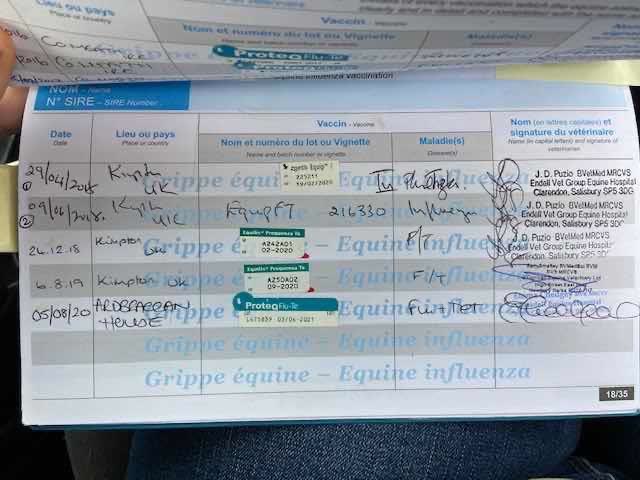 Lieu ou pays
Place or country
Vaccin - Vaccine
Nom et numéro du lot ou Vignette
Name and batch number or vignette
Maladie(s)
Disease(s)
ProteqFlu-Te
Equine influenza vaccination
NOM - Name
N° SIRE - SIRE Number
Date
Date
Lieu ou pays
Place or country
Vaccin - Vaccine
Nom et numéro du lot ou Vignette
Name and batch number or vignette
Maladie(s)
Disease(s)
Nom (en lettres capitales) et
signature du vétérinaire
Name (in capital letters) and signature of
veterinarian
29/04/2018
①
UK
zoetis Equip
225211
19/02/2020
Grippe équine – Equine influenza
J. D. Puzio BVetMed MRCVS
Endell Vet Group Equine Hospital
Clarendon, Salisbury SP5 3DG
②
UK
Equip FT 216330
Influenza
Grippe équine – Equine influenza
J. D. Puzio BVetMed MRCVS
Endell Vet Group Equine Hospital
Clarendon, Salisbury SP5 3DG
26.12.18
Kimpton
UK
Equilis Prequenza Te
A242A01
02-2020
F/T
Grippe équine – Equine influenza
J. D. Puzio BVetMed MRCVS
Endell Vet Group Equine Hospital
Clarendon, Salisbury SP5 3DG
6.8.19
Kimpton UK
Equilis Prequenza Te
A250A02
09-2020
F/T
Grippe équine – Equine influenza
05/08/20
ARDBRACCAN
HOUSE
ProteqFlu-Te
L471839 03/06/2021
FLU + TET
Grippe équine – Equine influenza
Grippe équine – Equine influenza
Grippe équine – Equine influenza
18/35